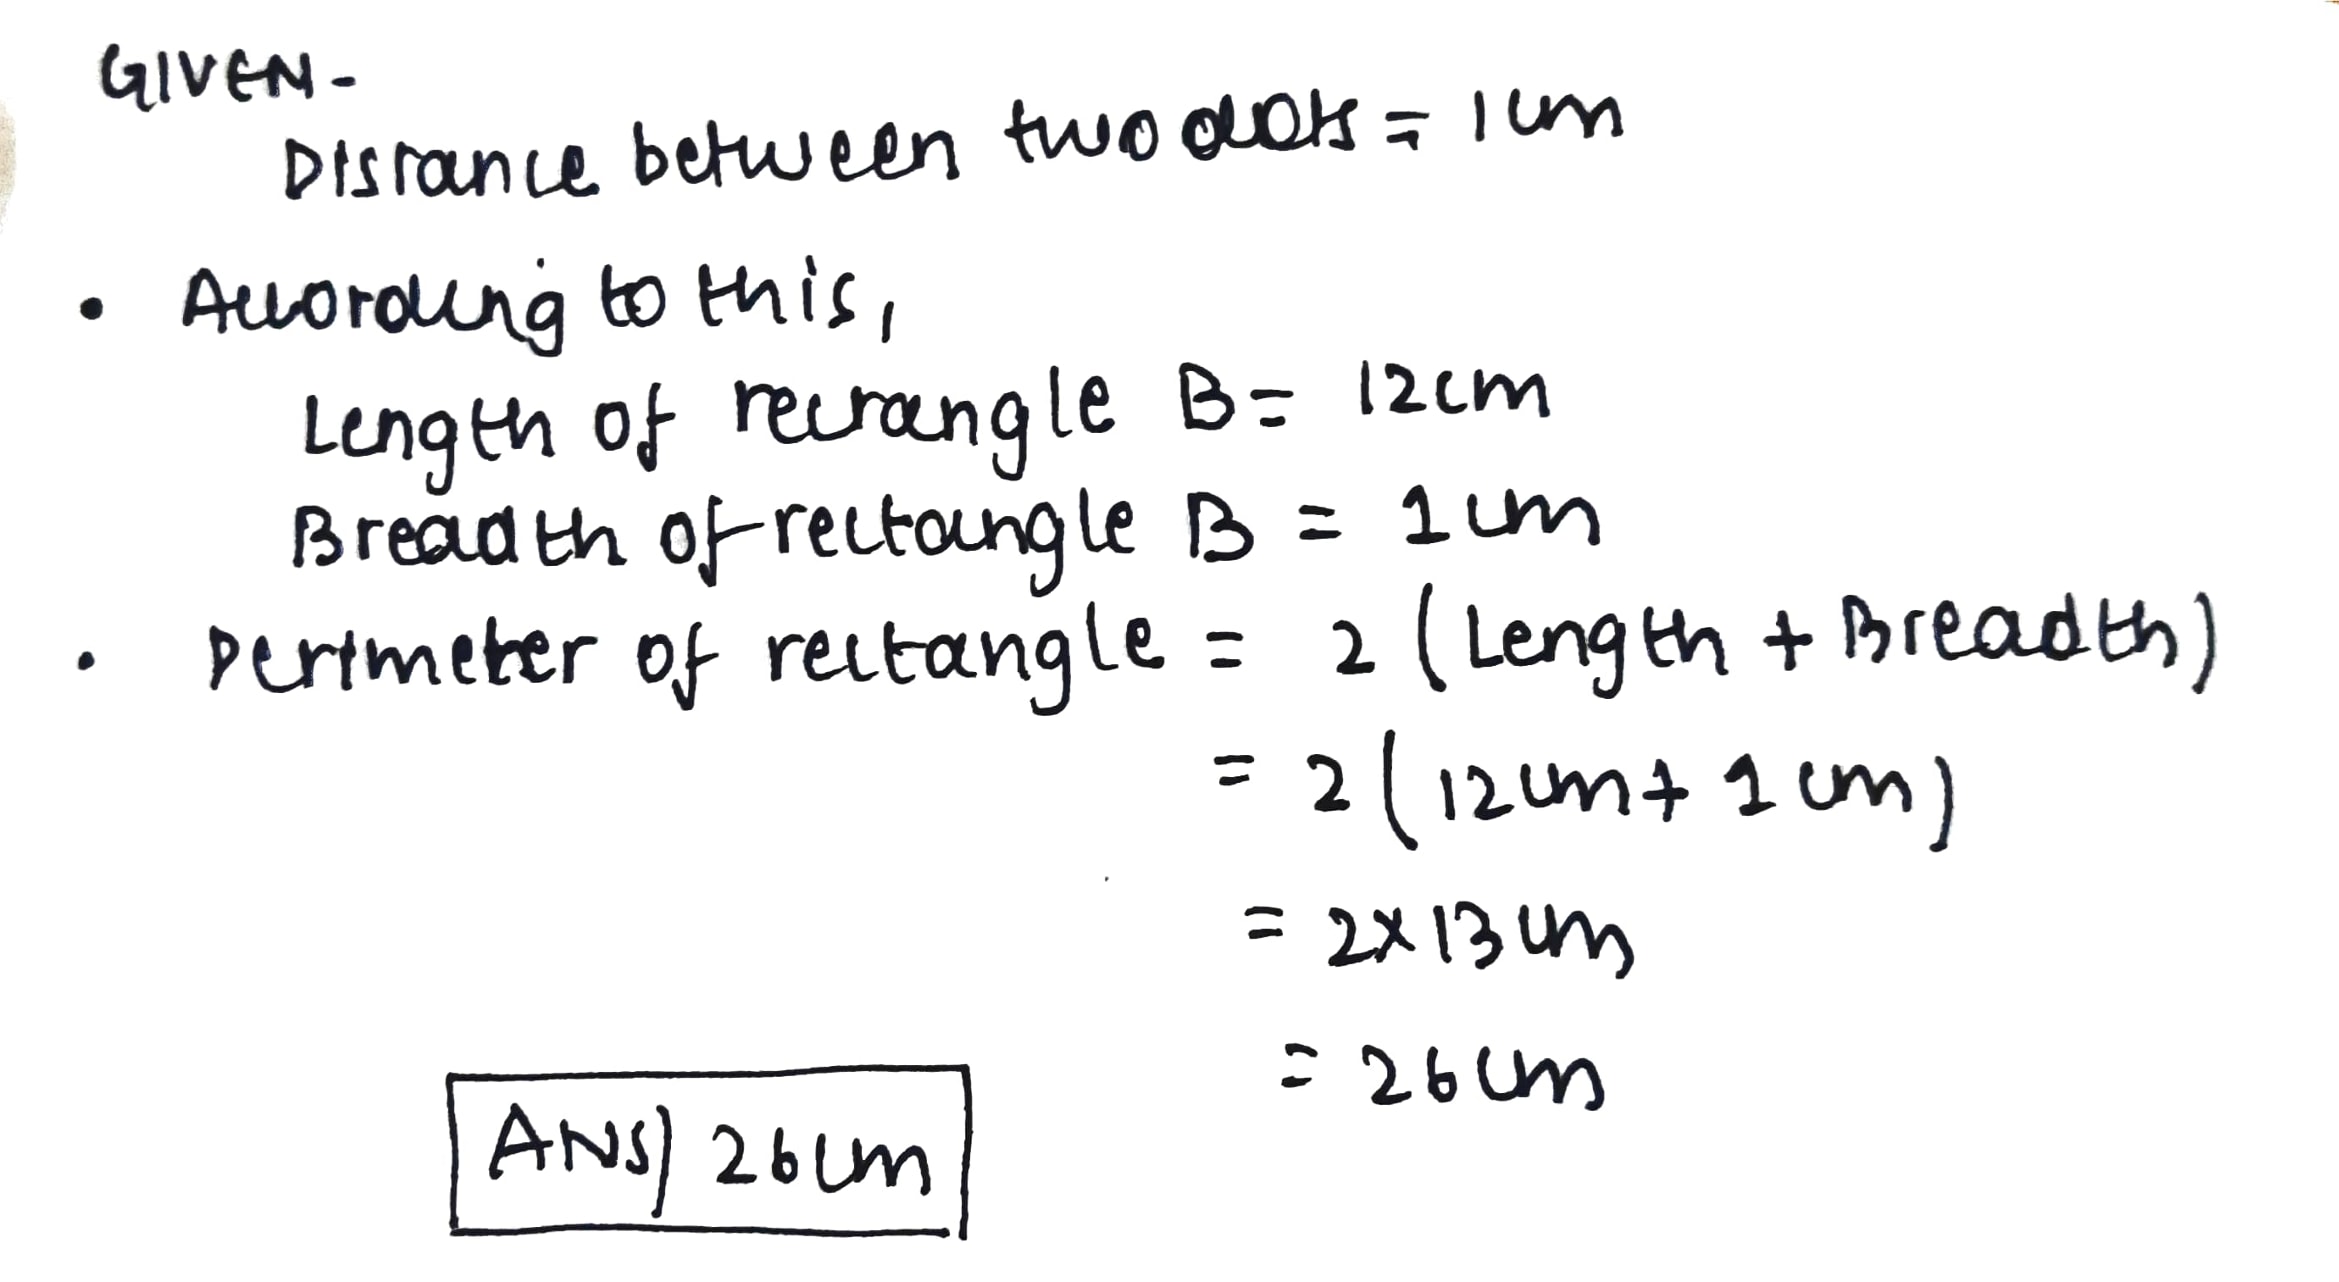 GIVEN-
Distance between two dots = 1cm
• According to this,
Length of rectangle B= 12cm
Breadth of rectangle B = 1cm
• Perimeter of rectangle = 2 (Length + Breadth)
= 2(12cm+1cm)
= 2x13cm
= 26cm
ANS) 26cm